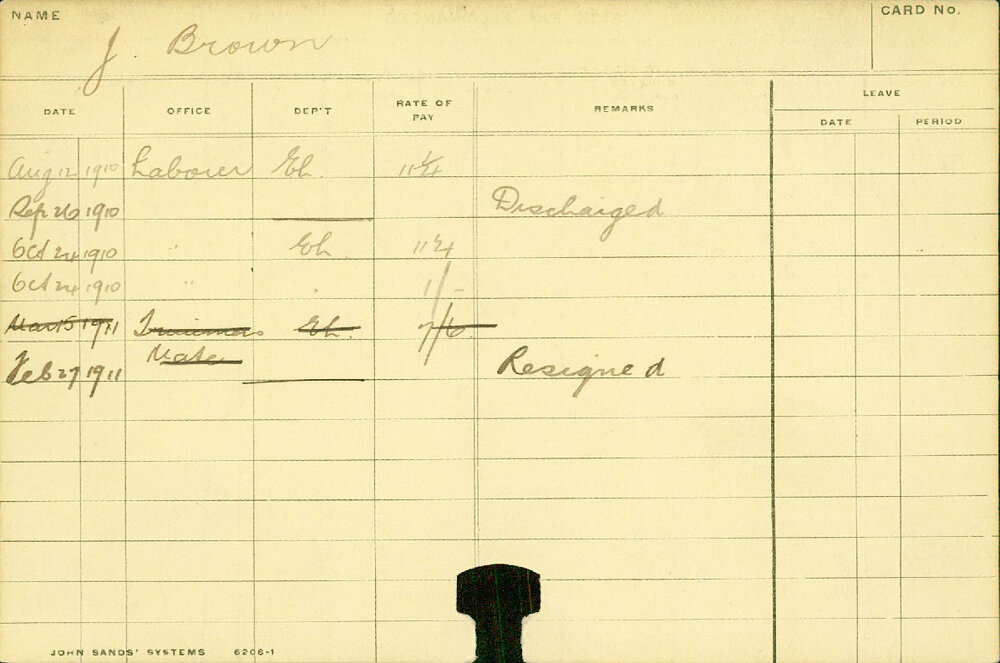 NAME J. Brown CARD No.
DATE OFFICE DEP'T RATE OF PAY REMARKS LEAVE
DATE PERIOD
Aug 12 1910 Laborer Eh. 11¼
Sep 26 1910 Discharged
Oct 24 1910 " Eh. 11¼
Oct 24 1910 " " 1/-
Mar 15 1911 Eh. 7/6
Mate
Feb 27 1911 Resigned
JOHN SANDS' SYSTEMS 6206-1